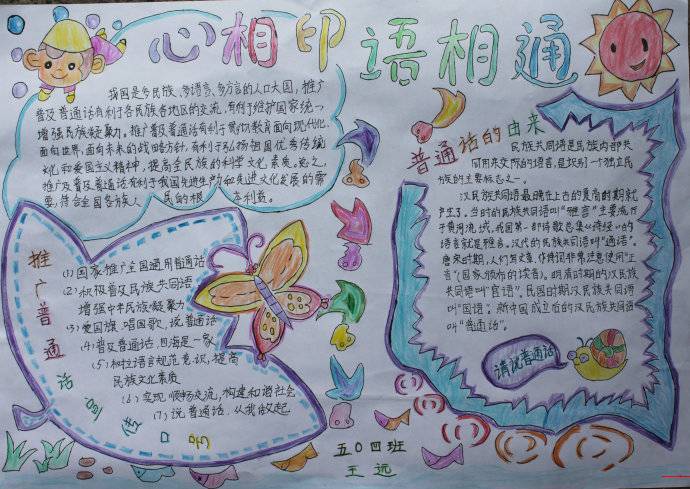 心相印 语相通
我国是多民族、多语言、多方言的人口大国，推广
普及普通话有利于各民族各地区的交流，有利于维护国家统一
增强民族凝聚力。推广普及普通话有利于贯彻教育面向现代化
面向世界，面向未来的战略方针，有利于弘扬祖国优秀传统
文化和爱国主义精神，提高全民族的科学文化素质。总之，
推广及普及普通话有利于我国先进生产力和先进文化发展的需
要，符合全国各族人民的根本利益。
推广普通话宣传口号
(1)国家推广全国通用普通话
(2)积极普及民族共同语
增强中华民族凝聚力
(3)爱国旗 唱国歌、说普通话
(4)普及普通话，四海是一家
(5)树立语言规范意识，提高
民族文化素质
(6)实现顺畅交流，构建和谐社会
(7)说普通话．从我做起
普通话的由来
民族共同语是民族内部共
同用来交际的语言，是识别一个独立民
族的主要标志之一。
汉民族共同语最晚在上古的夏商时期就
产生了。当时的民族共同语叫“雅言”主要流行
于黄河流域，我国第一部诗歌总集《诗经》的
语言就是雅言。汉代的民族共同语叫“通语”。
唐宋时期，人们写文章、作诗词非常注意使用“正
音”(国家颁布的读音)。明清时期的汉民族
共同语叫“官语”，民国时期汉民族共同语叫
“国语”。新中国成立后的汉民族共同语
叫“普通话”。
请说普通话
五〇四班
王远